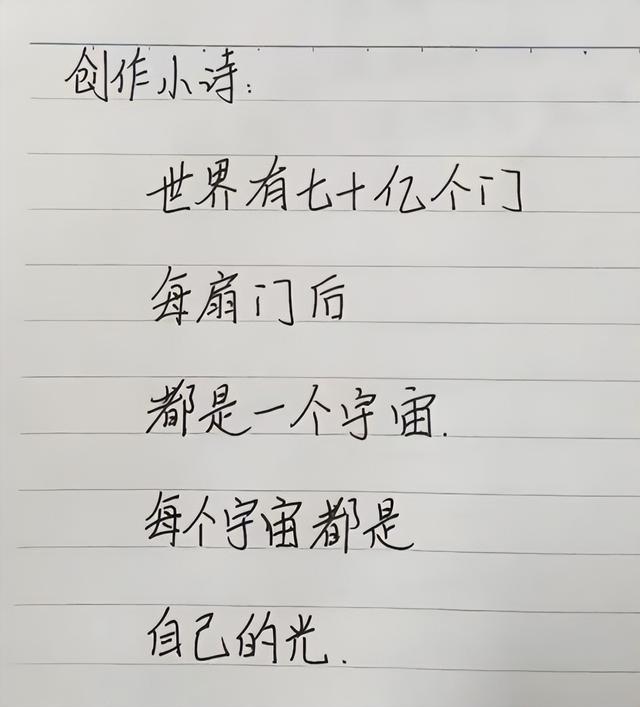 创作小诗:
世界有七十亿个门
每扇门后
都是一个宇宙.
每个宇宙都是
自己的光.